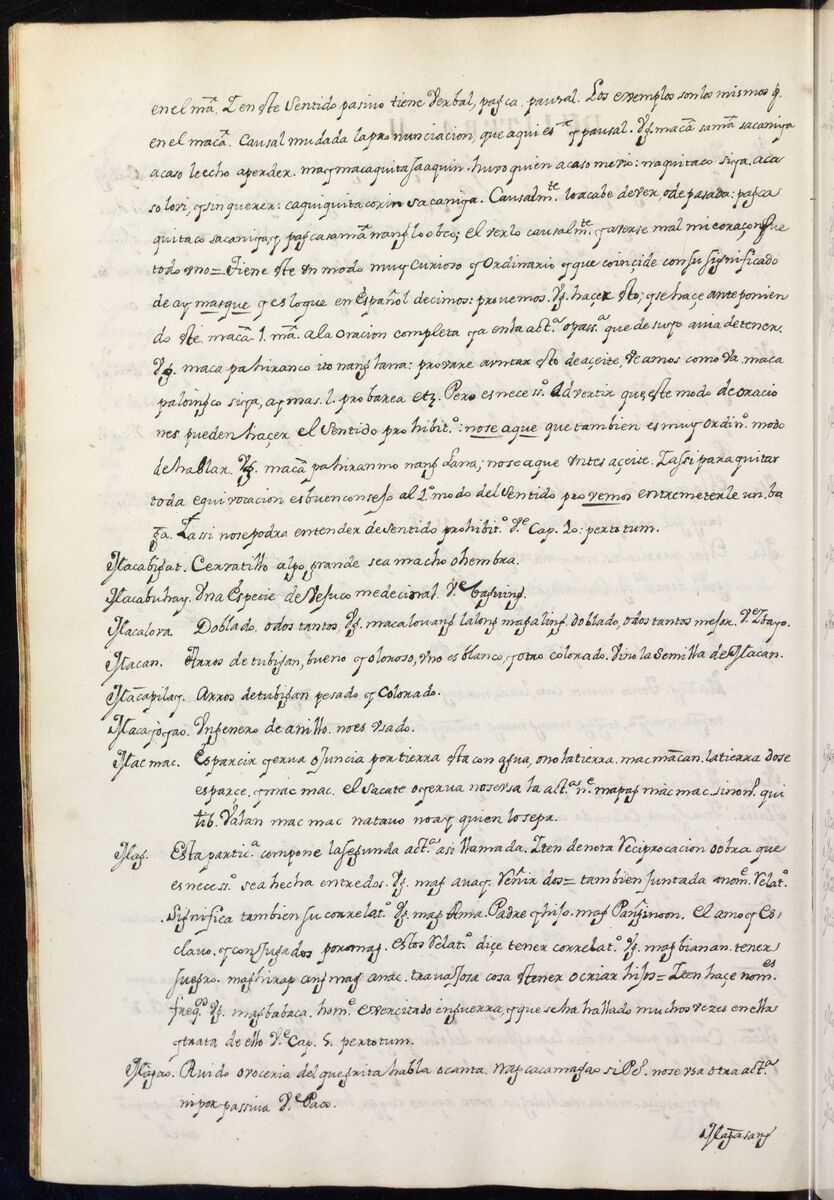 en el mã. I en este sentido pasivo tiene verbal, pagca. pausal. Los exemplos son los mismos q̃.
en el macã. Causal mudada la pronunciacion, que aqui es pausal. Vg. macã samã sacaniga
acaso le echo a perder. mag macaquita saaquin. huro quien acaso me vio: naquitaco siga. aca
so lo vi, y sin querer: caquiquitacorin sacaniga. Causalm.te lo acabe de ver, o de pasada: pagca
quitaco sacaniga, y pagcasamã nang lo obco; el verlo causalm.te y averse mal mi coraçon fue
todo uno = Tiene este un modo muy curioso y ordinario y que coinçide con su significado
de ay masque y es lo que en Español decimos: provemos. Vg. hacer esto; y se haçe anteponien
do este. macã. l. mã. a la oracion completa ya en la act.a o pass.a que de suyo avia de tener.
Vg. maca pahiranco ito nang lana: provare a untar esto de açeite, veamos como va. maca
paloingco siga, ay mas. l. probarea etz. Pero es neces.o advertir que este modo de oracio
nes pueden haçer el sentido prohibit.o: no se aque que tambien es muy ordin.o modo
de hablar. Vg. macã pahiranmo nang Lana; no se aque untes açeite. I assi para quitar
toda equivocacion es buen consejo al 1.o modo del sentido provemos entremeterle un. ba
ga. I assi no se podra entender de sentido prohibit.o V.e Cap. 10: per totum.
Macabigat. Cervatillo algo grande sea macho o hembra.
Macabuhay. Una Especie de vejuco medecinal. V.e Taguing.
Macalova. Doblado, o dos tantos, Vg. macalovang lalong magaling doblado, o dos tantos mejor. V.e Ibayo.
Macan. Arros de tubigan, bueno y oloroso, uno es blanco, y otro colorado. Vino la semilla de Macan.
Macapilay. Arros de tubigan pesado y Colorado.
Un genero de anillo. no es usado.
Mac mac. Esparcir yerva o juncia por tierra esta con que, o no la tierra. macmacan. la tierra do se
esparçe, y mac mac. el sacate o yerva no se usa la act.a n.e mapag mac mac. sinon.o qui
tib. Valan mac mac natavo no ay quien lo sepa.
Mag. Esta partic.a compone la segunda act.a asi llamada. Iten denota reciprocacion o obra que
es neces.o sea hecha entre dos. Vg. mag avay. reñir dos = tambien juntada a nom.e relat.o
significa tambien su correlat.o Vg. mag Ama. Padre y hijo. mag Panginoon. el amo y es-
clavo. y conjugados por mag. estos relat.o diçe tener correlat.o Vg. magbianan. tener
suegro. maghirap ang mag anac. travajosa cosa tener o criar hijos = Iten haçe nom.es
freq.o Vg. magbabaca. hom.e exercitado in guerra, y que se ha hallado muchos vezes en ella
y trata de ello V.e Cap. 5. per totum.
Magao. Ruido o voceria del que grita habla o canta. nag cacamagao si P.o. no se usa otra act.a
ni por passiva V.e Paos.
Magasang